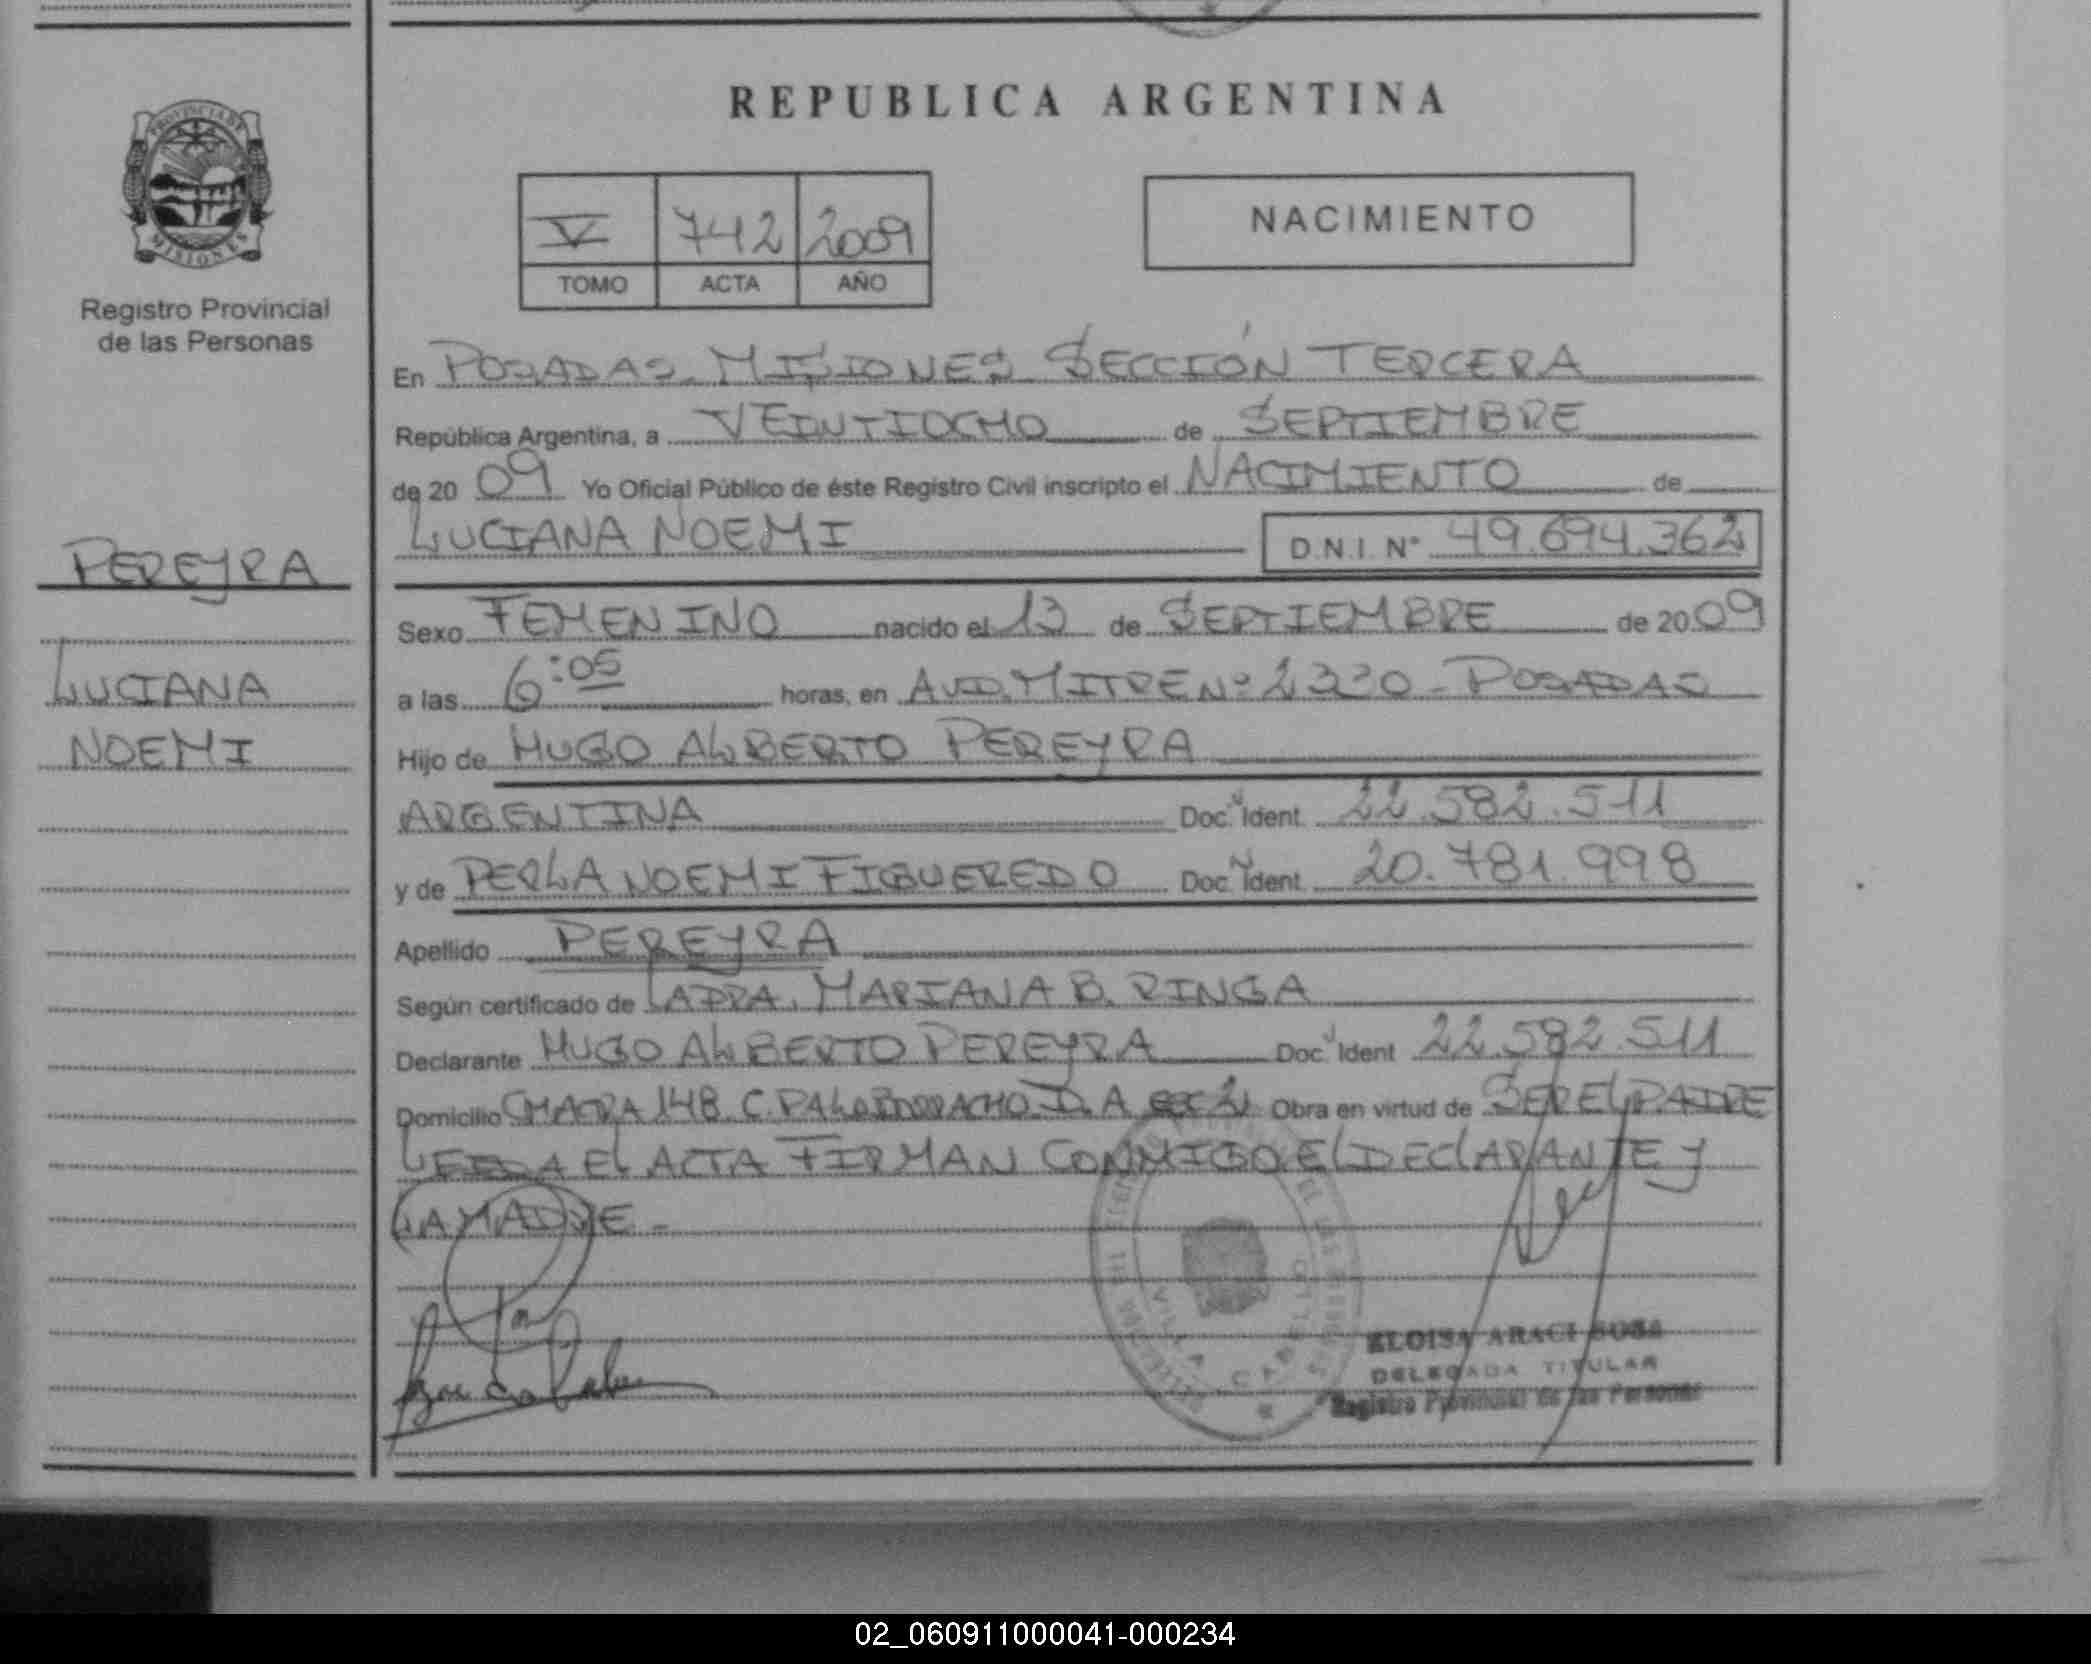 REPUBLICA ARGENTINA
PROVINCIA DE
MISIONES
Registro Provincial
de las Personas
V 742 2009
TOMO ACTA AÑO
NACIMIENTO
En POSADAS MISIONES SECCIÓN TERCERA
República Argentina, a VEINTIOCHO de SEPTIEMBRE
de 20 09 Yo Oficial Público de éste Registro Civil inscripto el NACIMIENTO de
LUCIANA NOEMI D.N.I. Nº 49.694.362
PEREYRA
LUCIANA
NOEMI
Sexo FEMENINO nacido el 13 de SEPTIEMBRE de 20 09
a las 6:05 horas, en AVD. MITRE Nº 2330 - POSADAS
Hijo de HUGO ALBERTO PEREYRA
ARGENTINA Doc. Ident. 22.582.511
y de PERLA NOEMI FIGUEREDO Doc. Ident. 20.781.998
Apellido PEREYRA
Según certificado de LA DRA. MARIANA B. RINGA
Declarante HUGO ALBERTO PEREYRA Doc. Ident 22.582.511
Domicilio CHACRA 148 C. PALO BORRACHO D. A Obra en virtud de SER EL PADRE
LEIDA EL ACTA FIRMAN CONMIGO EL DECLARANTE Y
LA MADRE -
VILLA CABELLO
ELOISA ARACI SOSA
DELEGADA TITULAR
Registro Provincial de las Personas
02_060911000041-000234